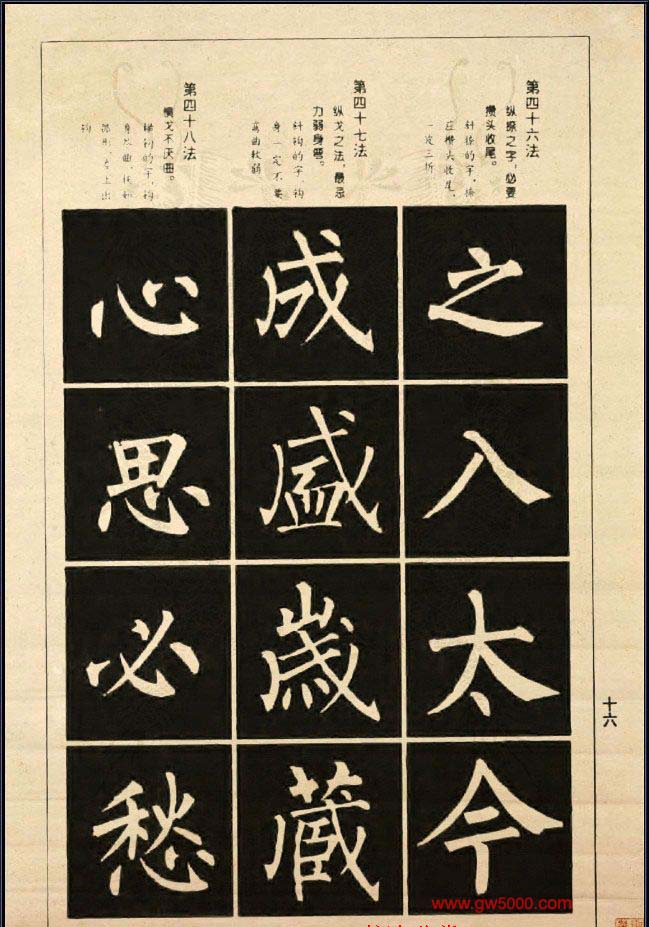 第四十六法
纵捺之字，必要
攒头收尾。
斜捺的字，捺
应攒头收尾，
一波三折
之
入
太
今
第四十七法
纵戈之法，最忌
力弱身弯。
斜钩的字，钩
身一定不要
弯曲软弱
成
盛
歲
蔵
第四十八法
横戈不厌曲。
横钩的字，钩
钩
心
思
必
愁
十六
www.gw5000.com